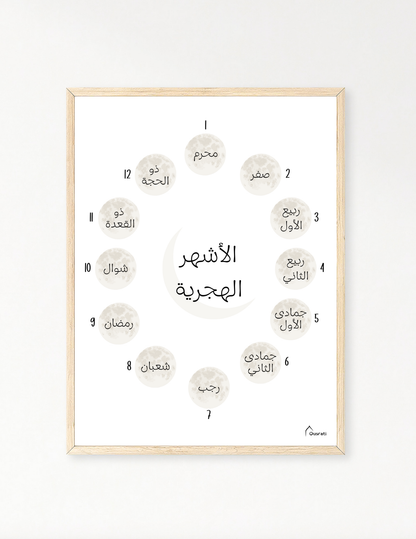 1
محرم
2
صفر
3
ربيع
الأول
4
ربيع
الثاني
5
جمادى
الأول
6
جمادى
الثاني
7
رجب
8
شعبان
9
رمضان
10
شوال
11
ذو
القعدة
12
ذو
الحجة
الأشهر
الهجرية